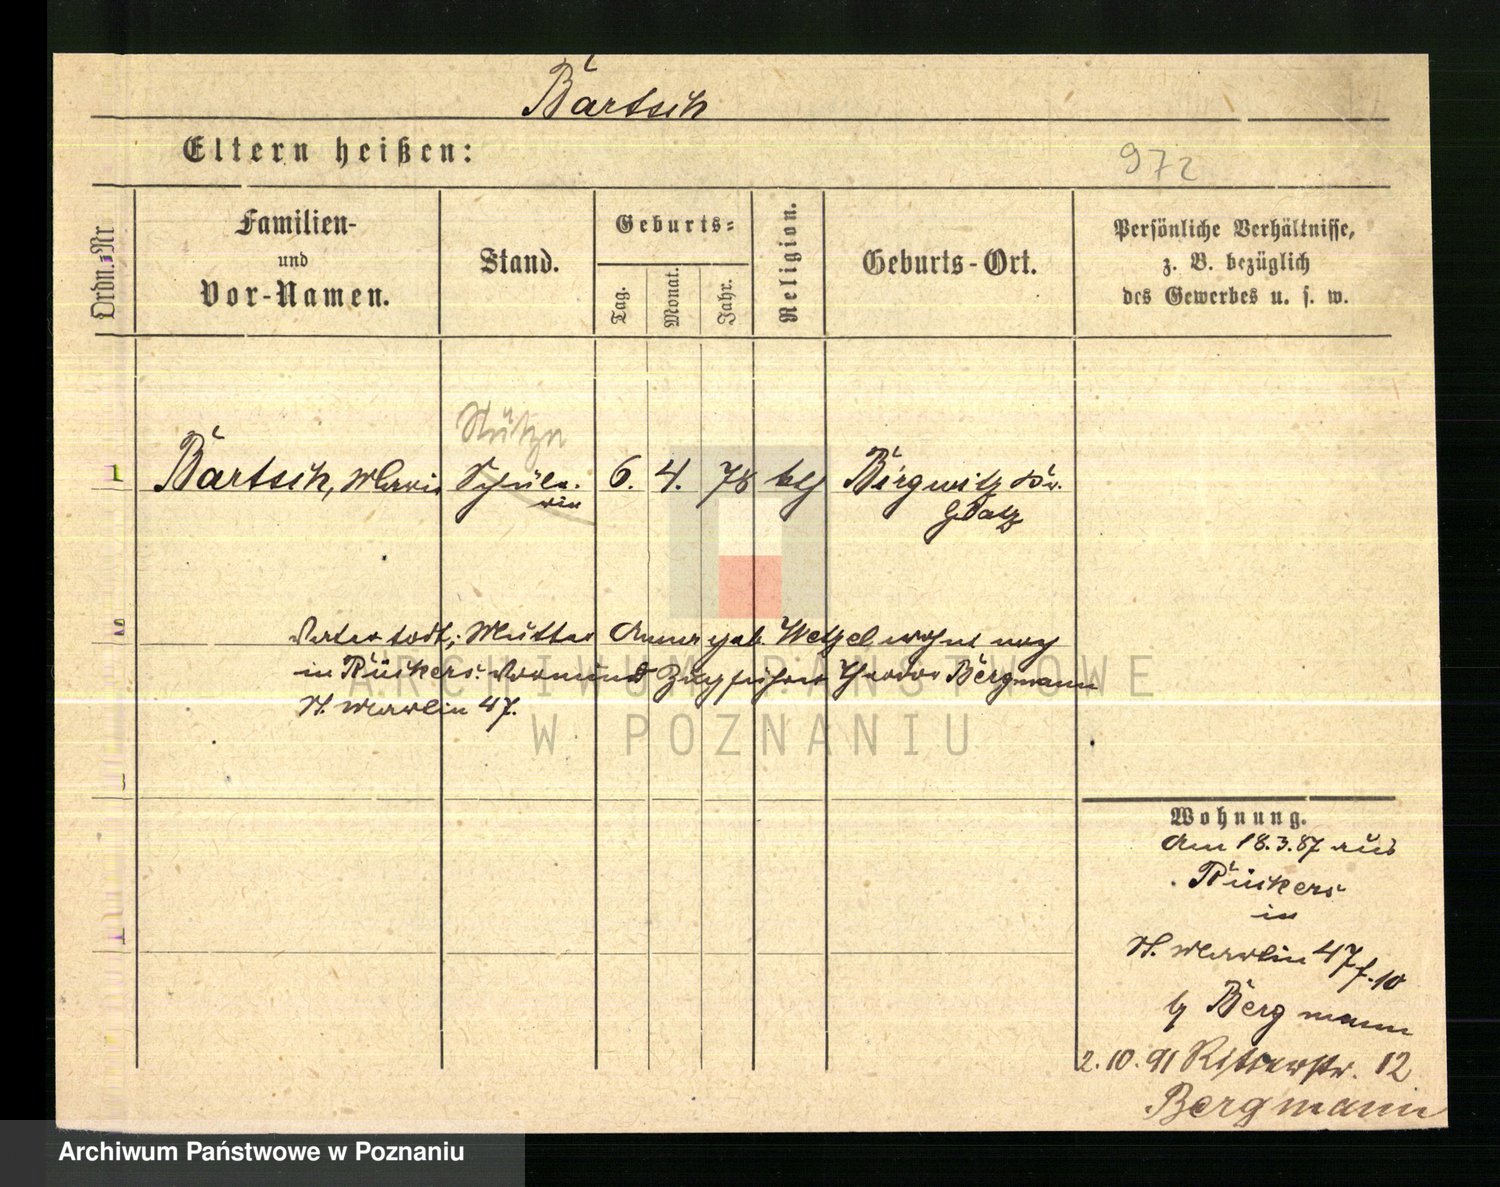 Bartsch
Eltern heißen:
972
Ordn.-Nr.
Familien-
und
Vor-Namen.
Stand.
Geburts-
Tag.
Monat.
Jahr.
Religion.
Geburts-Ort.
Persönliche Verhältnisse,
z. B. bezüglich
des Gewerbes u. s. w.
Stütze
Bartsch, Marie Schüle- 6. 4. 78 kth Birgwitz Kr.
rin Glatz
Vater todt; Mutter Anna geb. Wetzel wohnt noch
in Rückers. Vormund Zugführer Theodor Bergmann
St. Martin 47.
ARCHIWUM PAŃSTWOWE
W POZNANIU
Wohnung.
Am 18.3.87 aus
Rückers
in
St. Martin 47
b/ Bergmann
2.10.91 Ritterstr. 12
Bergmann
Archiwum Państwowe w Poznaniu